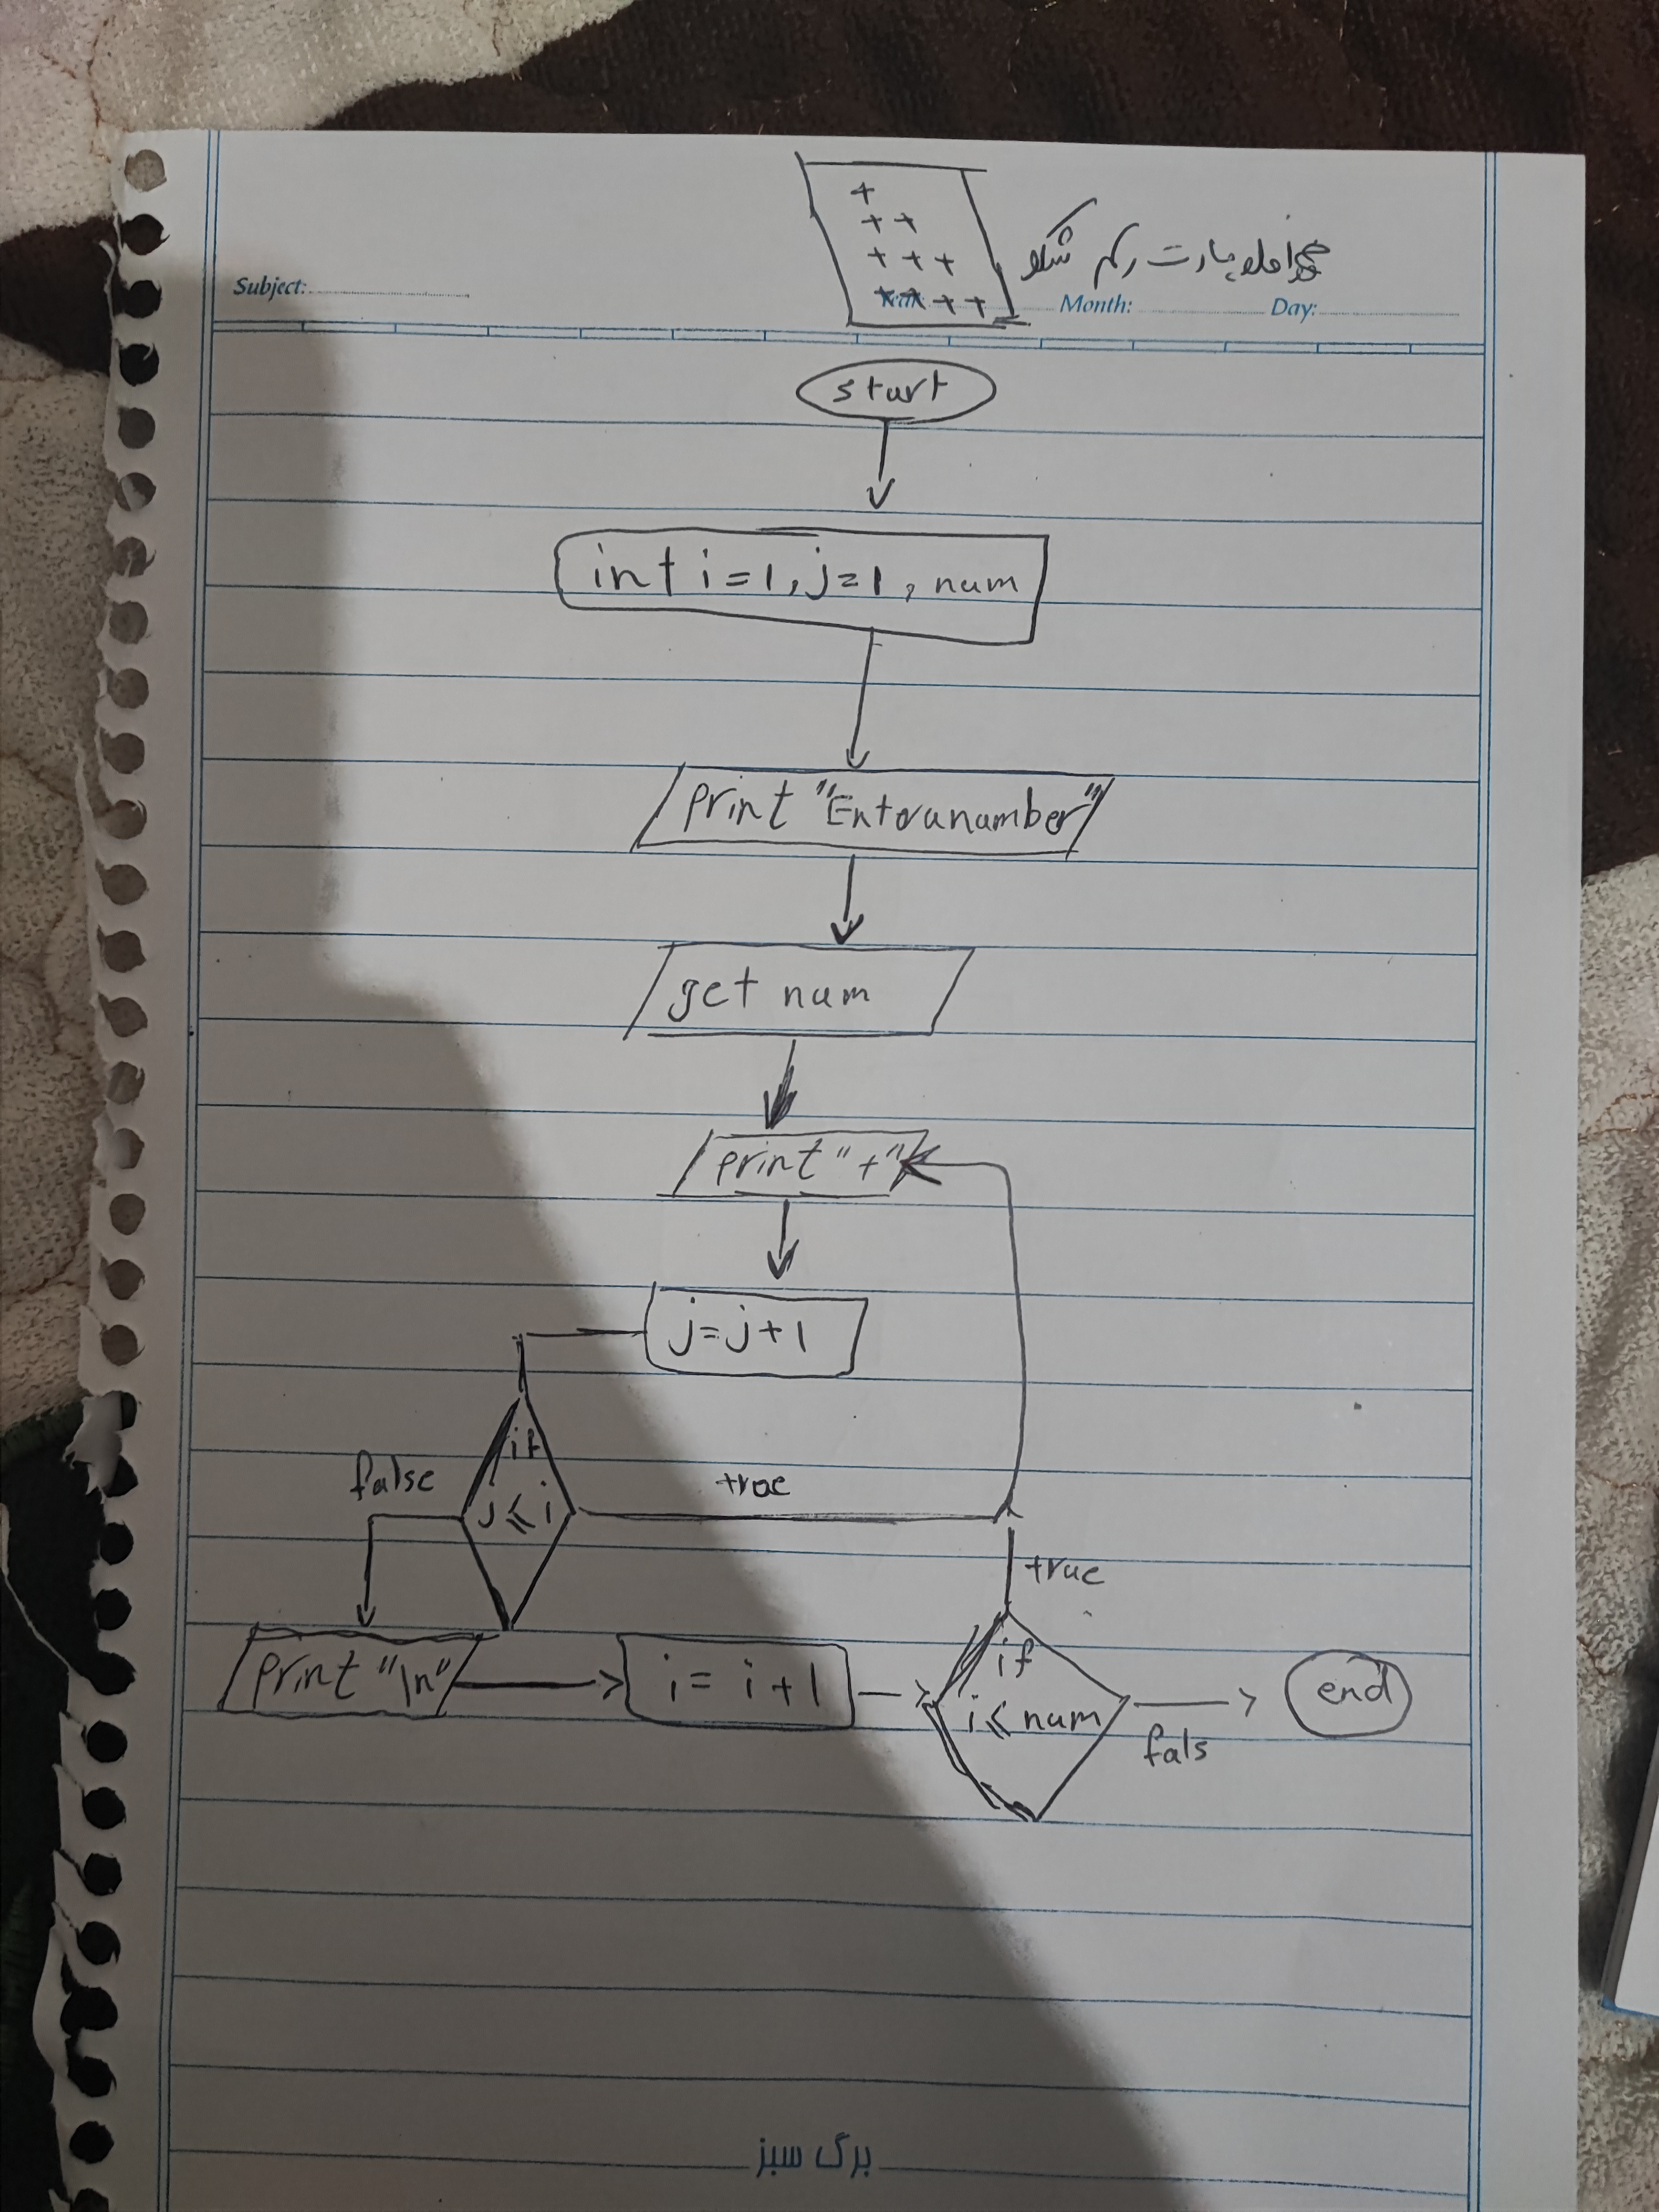 +
+ +
+ + +
+ + + +
فلوچارت رسم شکل
Subject:
Month:
Day:
start
int i=1, j=1, num
print "Enter a number"
get num
print "+"
j=j+1
if
j≤i
false
true
true
print "\n"
i=i+1
if
i≤num
fals
end
برگ سبز